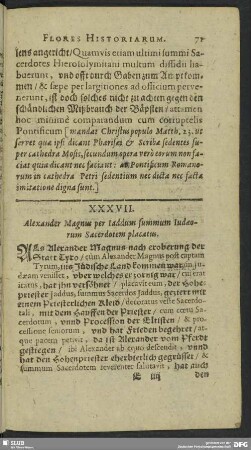 FLORES HISTORIARUM. 71
sens angericht / Quamvis etiam ultimi summi Sa-
cerdotes Hierosolymitani multum dissidii ha-
buerunt, und offt durch Gaben zum Ampt kom-
men / & sæpe per largitiones ad officium perve-
nerunt, ist doch solches nicht zu achten gegen den
schändlichen Mißbrauch der Bäpsten / attamen
hoc minimè comparandum cum corruptelis
Pontificum [mandat Christus populo Matth. 23. ut
servet quæ ipsi dicant Pharisæi & Scriba sedentes su-
per cathedra Mosis, secundum opera verò eorum non fa-
ciat quia dicant nec faciant: at Pontificum Romano-
rum in cathedra Petri sedentium nec dicta nec facta
imitatione digna sunt.]
XXXVII.
Alexander Magnus per Iaddum summum Iudæo-
rum Sacerdotem placatus.
ALs Alexander Magnus nach eroberung der
Statt Tyro / cùm Alexander Magnus post captam
Tyrum, ins Jüdische Land kommen war / in Ju-
dæam venisset, uber welches er zornig war / cui erat
iratus, hat ihn versöhnet / placavit eum, der Hohe-
priester Jaddus, summus Sacerdos Jaddus, gezieret mit
einem Priesterlichen Kleid / decoratus veste Sacerdo-
tali, mit dem Hauffen der Priester / cum cœtu Sa-
cerdotum, unnd Procession der Eltisten / & pro-
cessione seniorum, und hat Frieden begehret / at-
que pacem petivit, da ist Alexander vom Pferdt
gestiegen / ibi Alexander ab equo descendit, unnd
hat den Hohenpriester eherbietlich gegrüsset / &
summum Sacerdotem reverenter salutavit, hat auch
E iiij den
SLUB